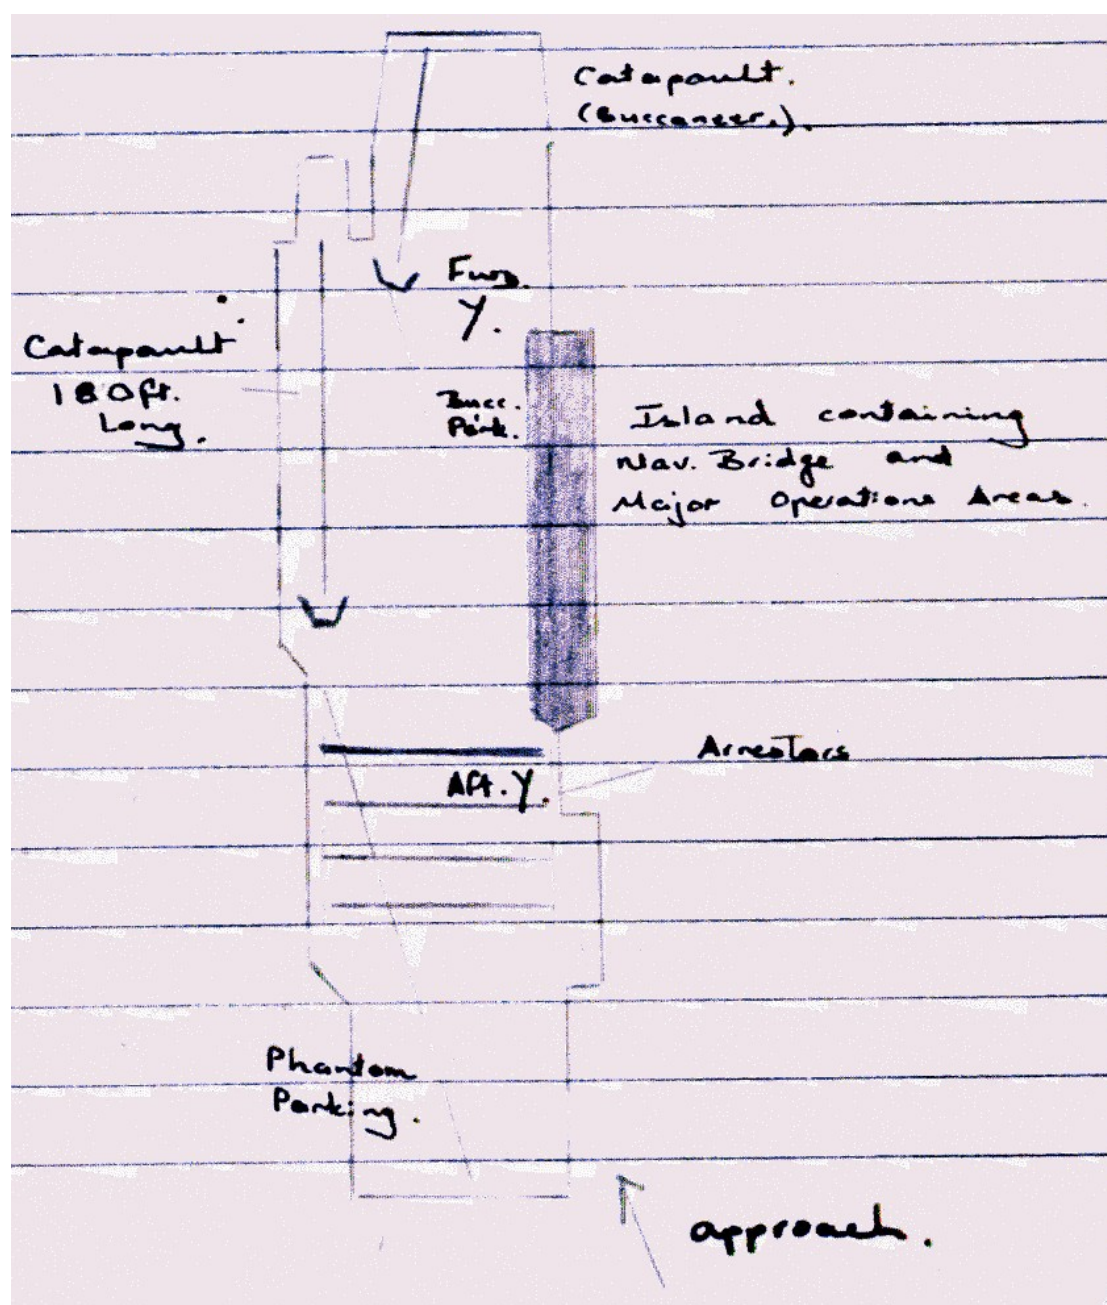 Catapault.
(Buccaneer.).
Fwd.
Y.
Catapault
180ft.
Long.
Bucc.
Park.
Island containing
Nav. Bridge and
Major Operations Areas.
Arrestors
Aft. Y.
Phantom
Parking.
approach.